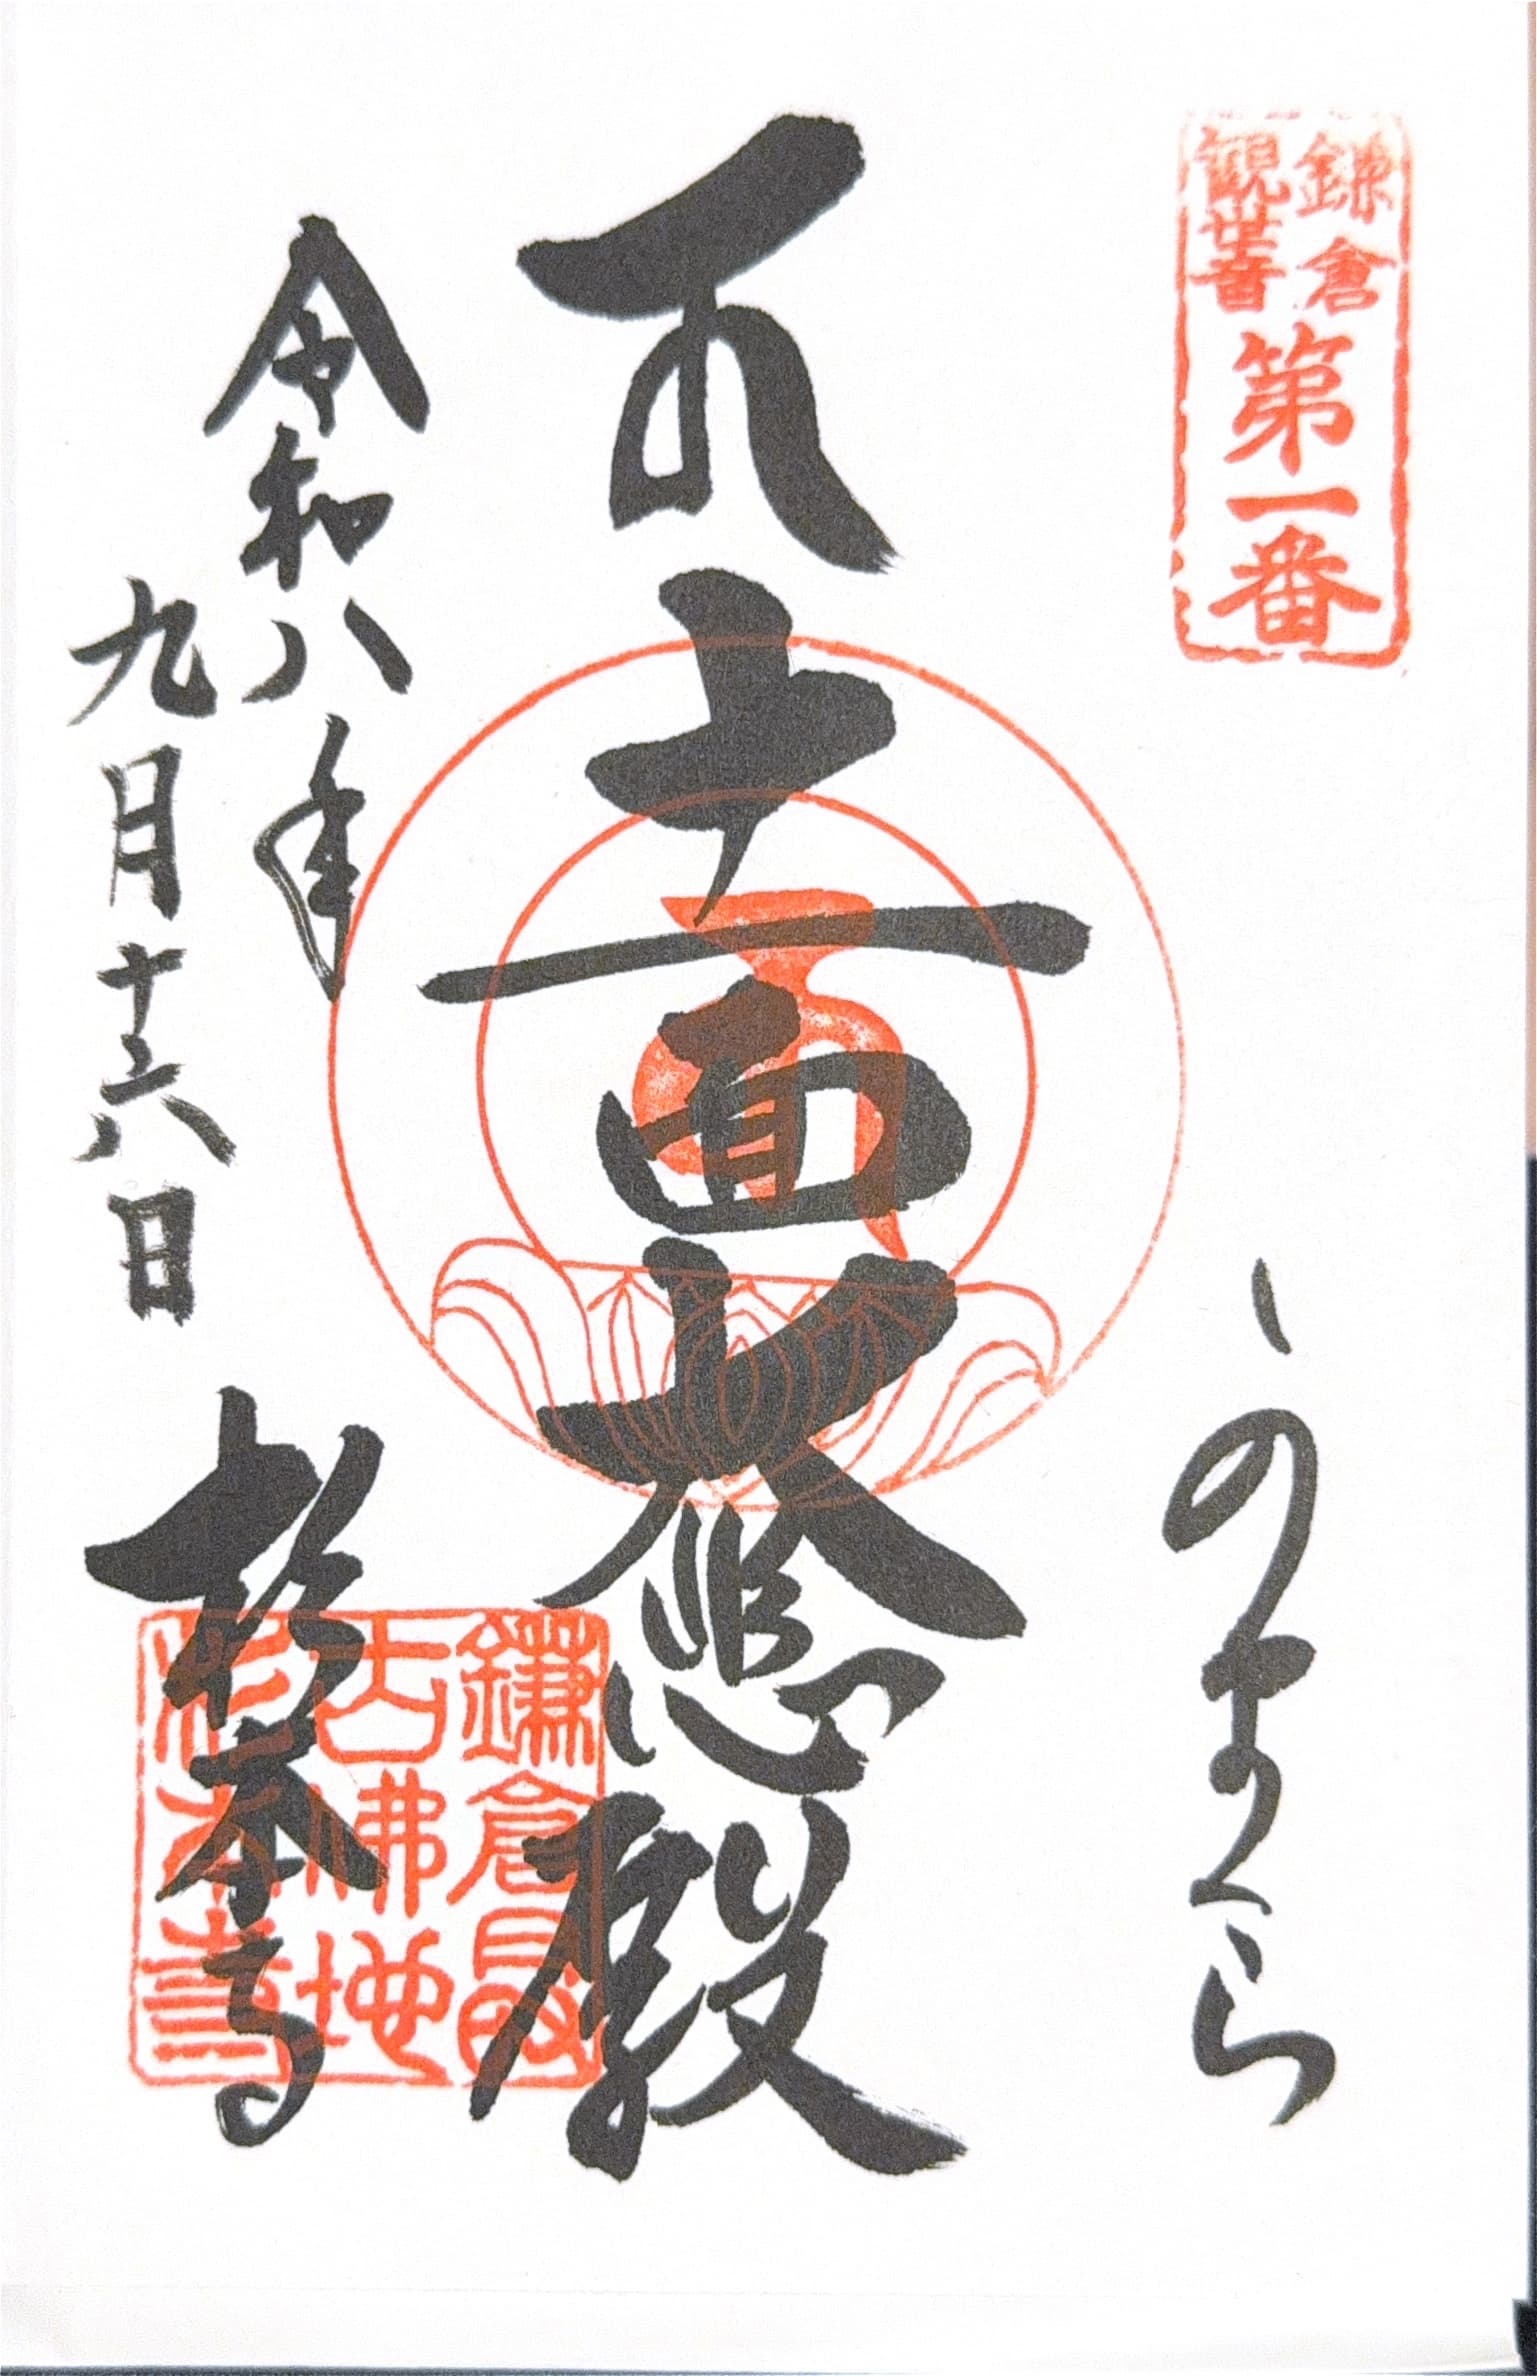 鎌倉
観世音
第一番
かまくら
十一面大悲殿
令和八年
九月十六日
杉本寺
鎌倉最
古佛地
杉本寺